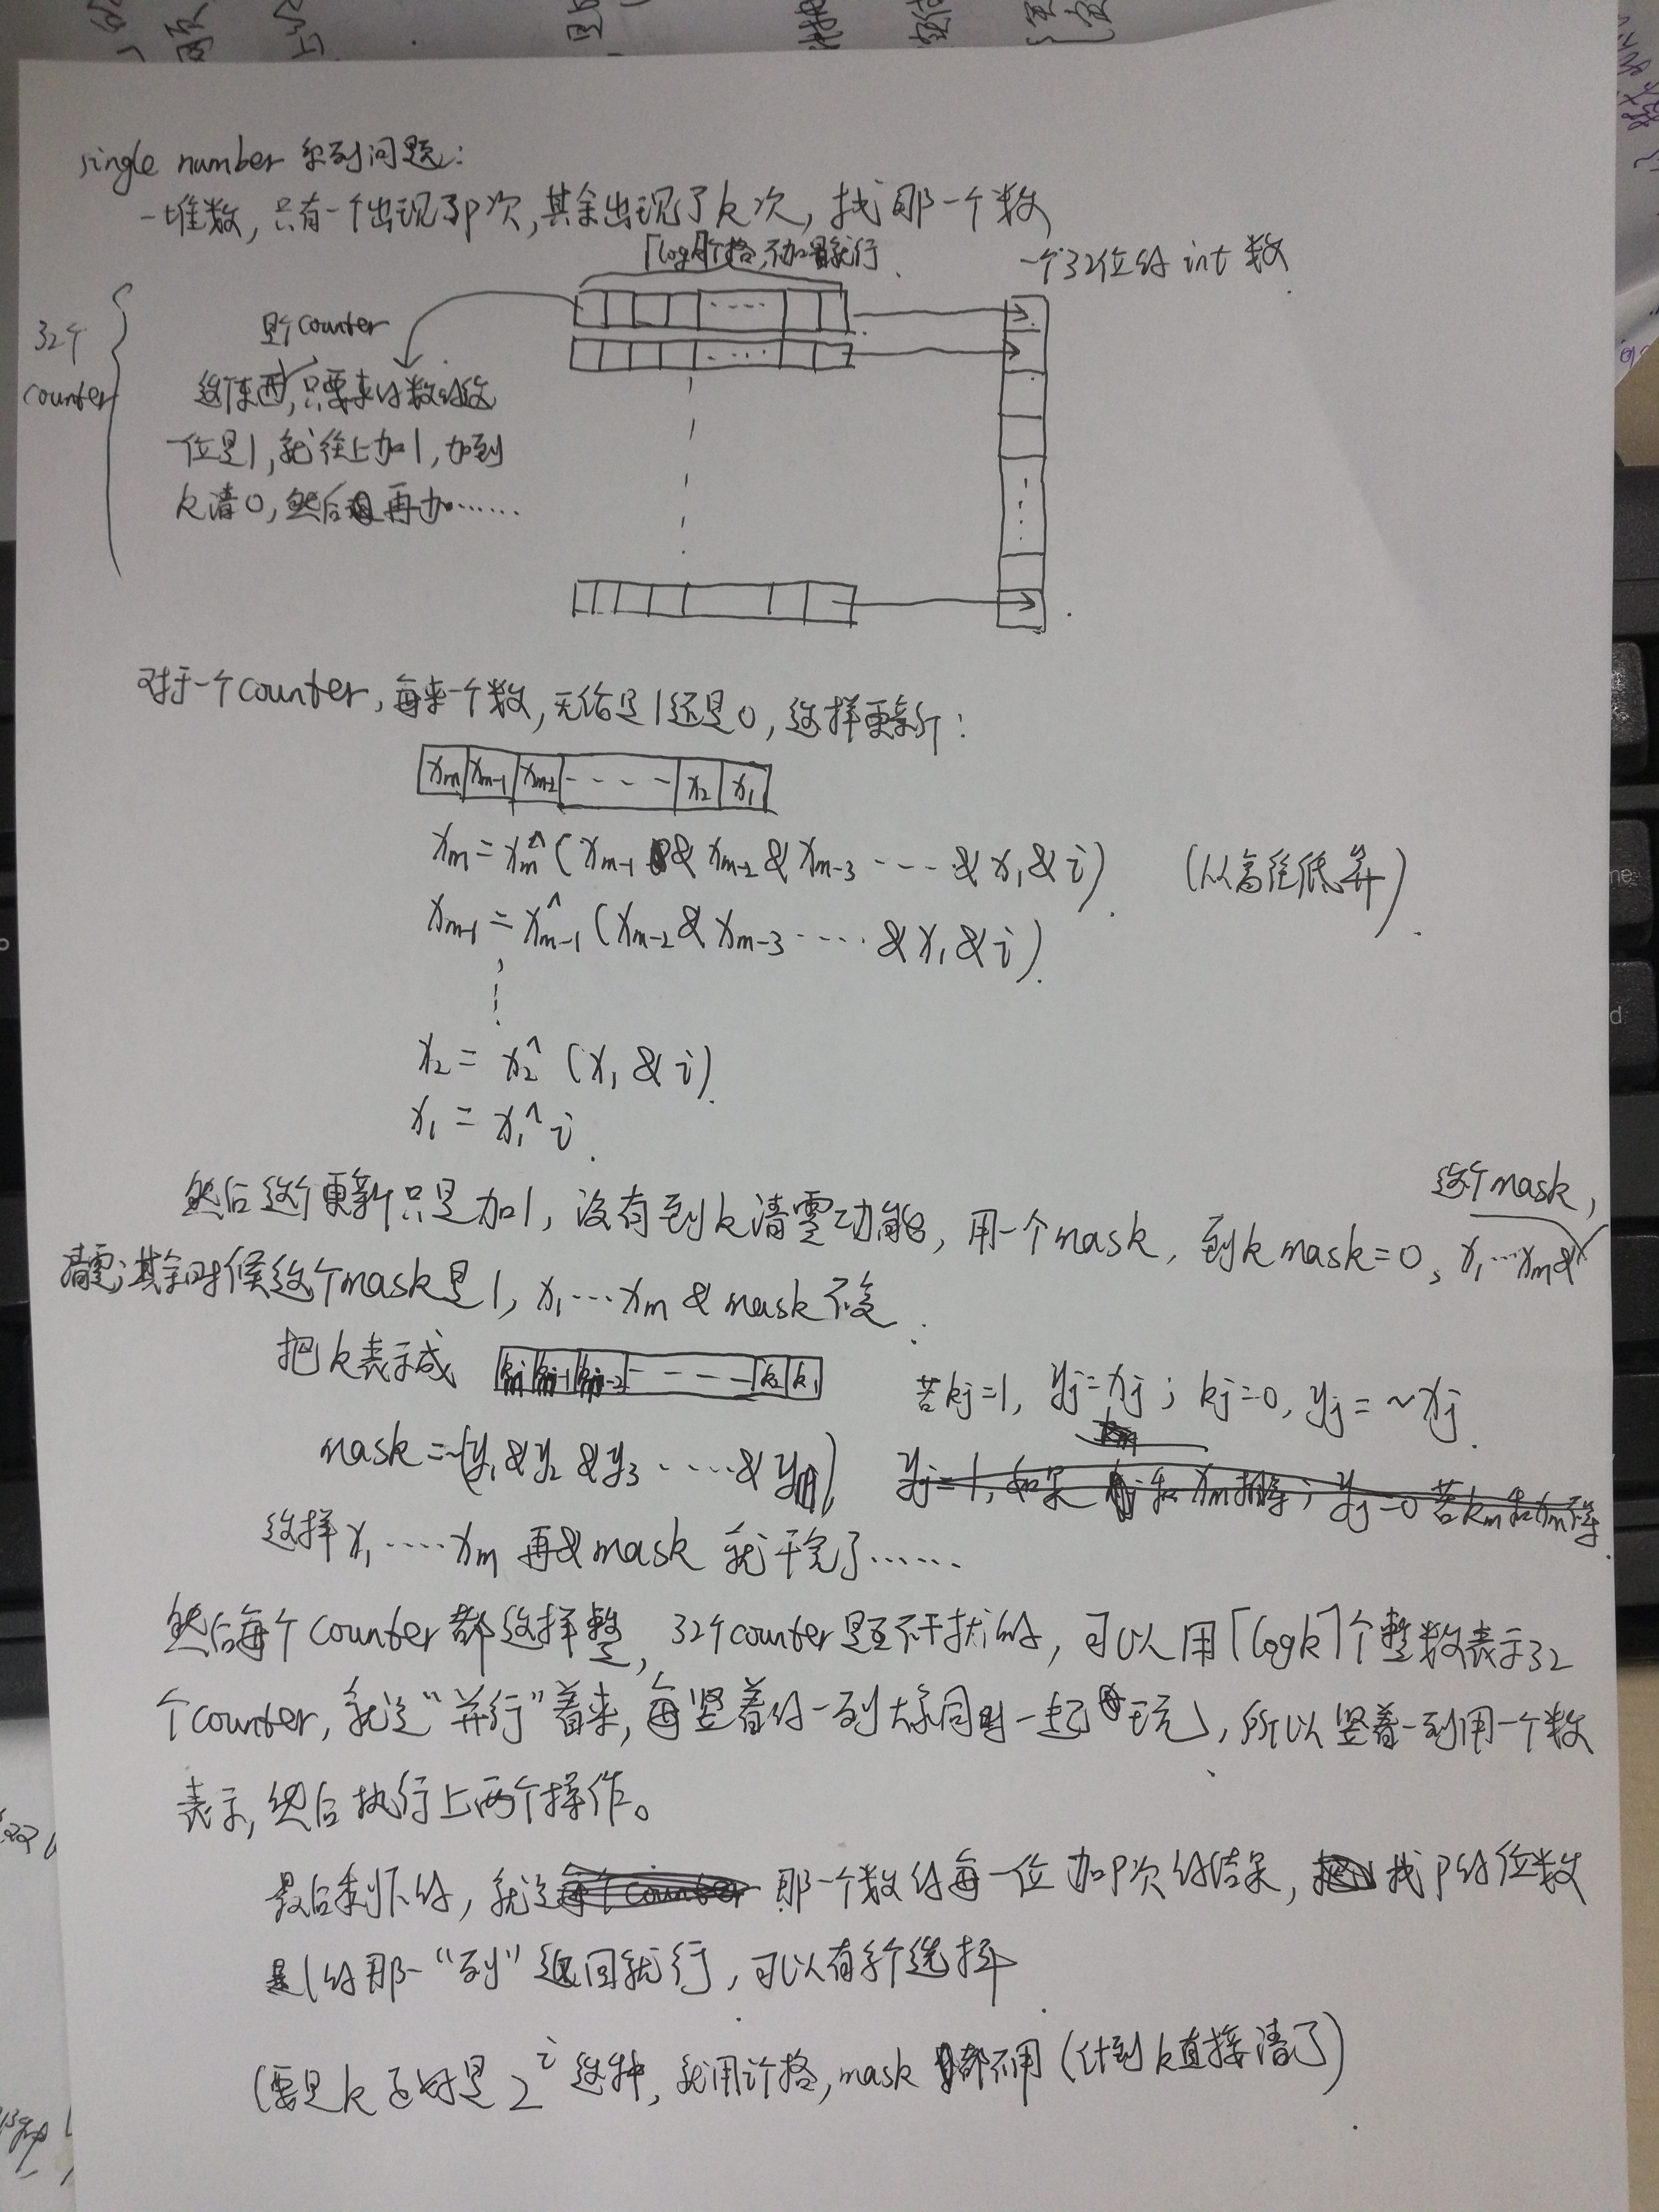 single number 系列问题:
一堆数, 只有一个出现了p次, 其余出现了k次, 找那一个数
⌈logk⌉个格,不加1就行
一个32位的 int 数
32个
counter
是个counter
这个东西,只要来的数的这
一位是1, 就往上加1, 加到
k清0, 然后再加……
对于一个counter, 每来一个数, 无论是1还是0, 这样更新:
xm xm-1 xm-2 - - - - x2 x1
xm = xm^(xm-1 & xm-2 & xm-3 ---- & x1 & i) (从高往低算)
xm-1 = xm-1^(xm-2 & xm-3 ---- & x1 & i)
x2 = x2^(x1 & i)
x1 = x1^i
然后这个更新只是加1, 没有到k清零功能, 用一个mask, 到k mask=0, x1…xm& 这个mask,
清零;其余时候这个mask是1, x1…xm & mask不变
把k表示成 kj kj-1 kj-2 - - - - k2 k1 若kj=1, yj=xj; kj=0, yj=~xj
mask=~(y1&y2&y3……&ym)
这样x1……xm 再&mask 就干完了……
然后每个counter都这样整, 32个counter是互不干扰的, 可以用⌈logk⌉个整数表示32
个counter, 就这“并行”着来, 每竖着的一列大家同时一起玩, 所以竖着一列用一个数
表示, 然后执行上两个操作。
最后剩下的, 就是那一个数的每一位加p次的结果, 找p的位数
是1的那一“列”返回就行, 可以有多个选择
(要是k正好是2^i这种, 就用i个格, mask都不用 (计到k直接清了)